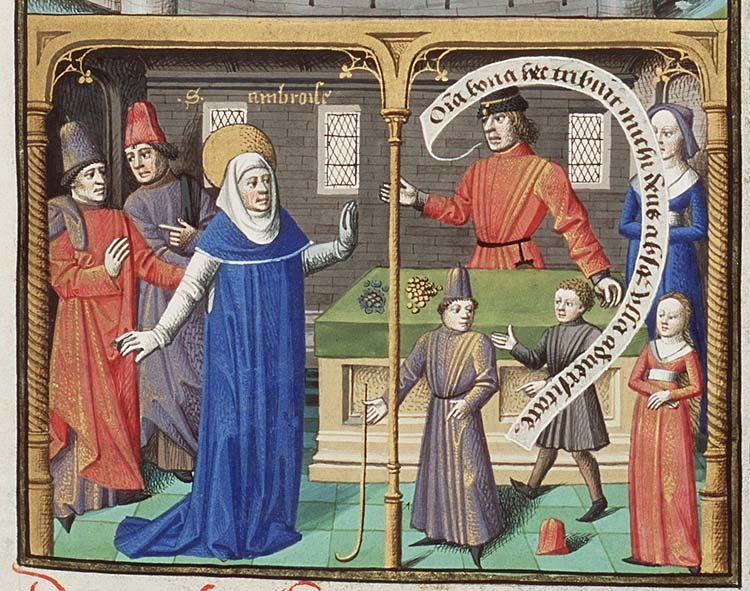 .S. ambroise
Oīa bona hec tribuit michi deus absq̄ vlla aduersitate.